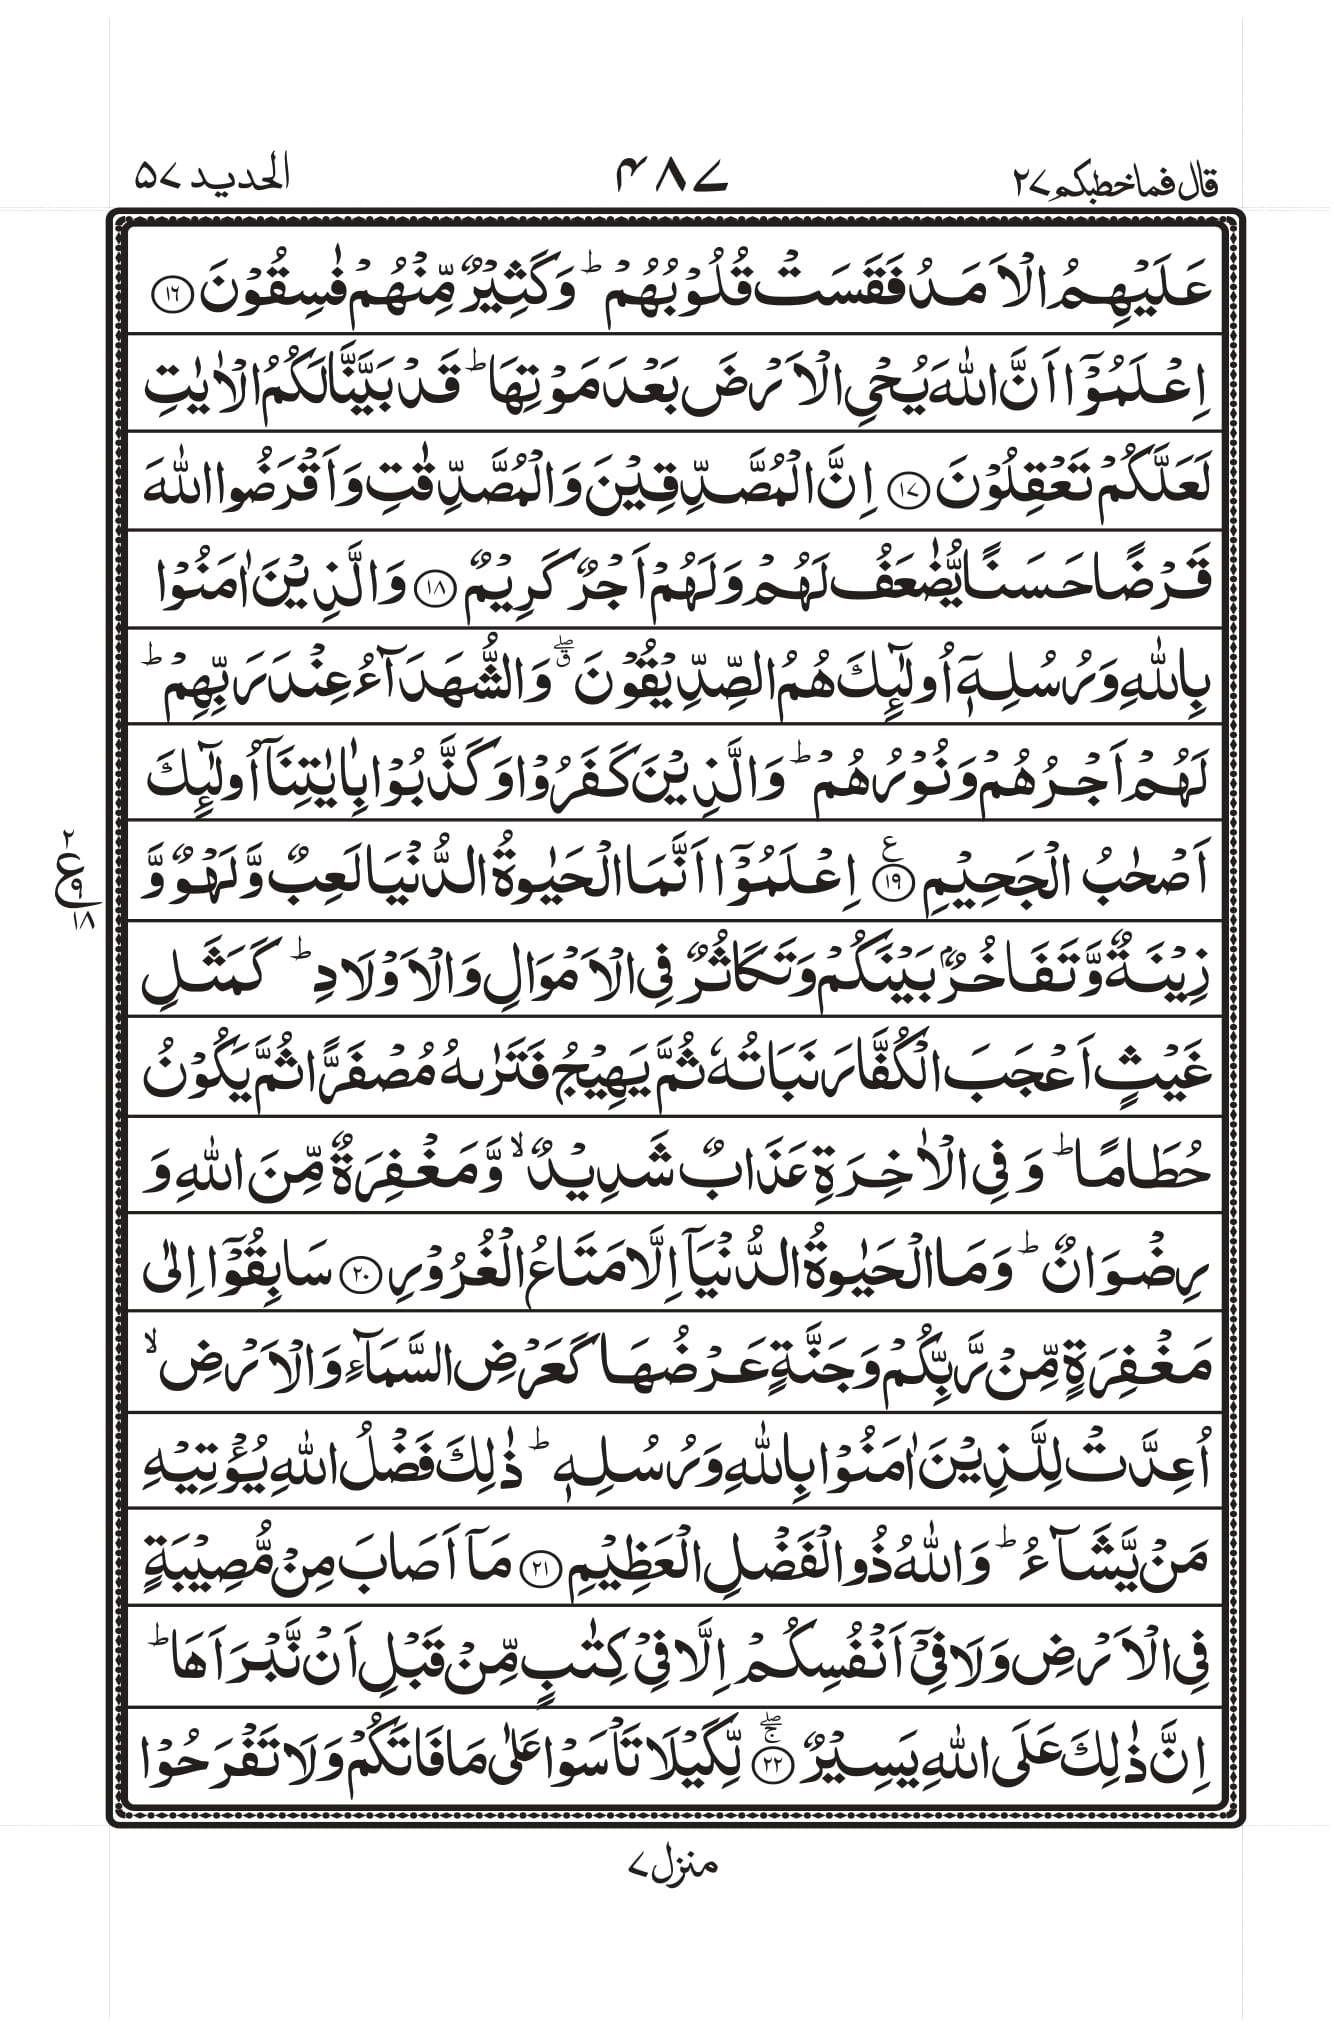 قال فما خطبكم ٢٧
٤٨٧
الحديد ٥٧
عَلَيْهِمُ الْاَمَدُ فَقَسَتْ قُلُوْبُهُمْ ؕ وَكَثِيْرٌ مِّنْهُمْ فٰسِقُوْنَ ﴿١٦﴾
اِعْلَمُوْۤا اَنَّ اللّٰهَ يُحْيِ الْاَرْضَ بَعْدَ مَوْتِهَا ؕ قَدْ بَيَّنَّا لَكُمُ الْاٰيٰتِ
لَعَلَّكُمْ تَعْقِلُوْنَ ﴿١٧﴾ اِنَّ الْمُصَّدِّقِيْنَ وَالْمُصَّدِّقٰتِ وَاَقْرَضُوا اللّٰهَ
قَرْضًا حَسَنًا يُّضٰعَفُ لَهُمْ وَلَهُمْ اَجْرٌ كَرِيْمٌ ﴿١٨﴾ وَالَّذِيْنَ اٰمَنُوْا
بِاللّٰهِ وَرُسُلِهٖۤ اُولٰٓئِكَ هُمُ الصِّدِّيْقُوْنَ ۖق وَالشُّهَدَآءُ عِنْدَ رَبِّهِمْ ؕ
لَهُمْ اَجْرُهُمْ وَنُوْرُهُمْ ؕ وَالَّذِيْنَ كَفَرُوْا وَكَذَّبُوْا بِاٰيٰتِنَاۤ اُولٰٓئِكَ
اَصْحٰبُ الْجَحِيْمِ ﴿١٩﴾ ع اِعْلَمُوْۤا اَنَّمَا الْحَيٰوةُ الدُّنْيَا لَعِبٌ وَّلَهْوٌ وَّ
٢
ع
٩
١٨
زِيْنَةٌ وَّتَفَاخُرٌۢ بَيْنَكُمْ وَتَكَاثُرٌ فِى الْاَمْوَالِ وَالْاَوْلَادِ ؕ كَمَثَلِ
غَيْثٍ اَعْجَبَ الْكُفَّارَ نَبَاتُهٗ ثُمَّ يَهِيْجُ فَتَرٰىهُ مُصْفَرًّا ثُمَّ يَكُوْنُ
حُطَامًا ؕ وَفِى الْاٰخِرَةِ عَذَابٌ شَدِيْدٌ ۙ وَّمَغْفِرَةٌ مِّنَ اللّٰهِ وَ
رِضْوَانٌ ؕ وَمَا الْحَيٰوةُ الدُّنْيَاۤ اِلَّا مَتَاعُ الْغُرُوْرِ ﴿٢٠﴾ سَابِقُوْۤا اِلٰى
مَغْفِرَةٍ مِّنْ رَّبِّكُمْ وَجَنَّةٍ عَرْضُهَا كَعَرْضِ السَّمَآءِ وَالْاَرْضِ ۙ
اُعِدَّتْ لِلَّذِيْنَ اٰمَنُوْا بِاللّٰهِ وَرُسُلِهٖ ؕ ذٰلِكَ فَضْلُ اللّٰهِ يُؤْتِيْهِ
مَنْ يَّشَآءُ ؕ وَاللّٰهُ ذُو الْفَضْلِ الْعَظِيْمِ ﴿٢١﴾ مَاۤ اَصَابَ مِنْ مُّصِيْبَةٍ
فِى الْاَرْضِ وَلَا فِىْۤ اَنْفُسِكُمْ اِلَّا فِىْ كِتٰبٍ مِّنْ قَبْلِ اَنْ نَّبْرَاَهَا ؕ
اِنَّ ذٰلِكَ عَلَى اللّٰهِ يَسِيْرٌ ﴿٢٢﴾ ۖۚ لِّكَيْلَا تَاْسَوْا عَلٰى مَا فَاتَكُمْ وَلَا تَفْرَحُوْا
منزل ٧